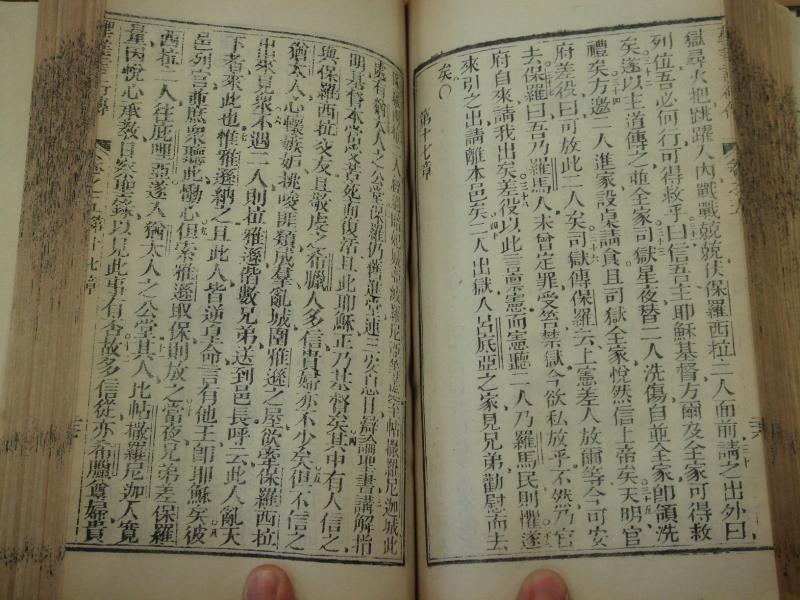 獄尋火把跳躍入內戰戰兢兢伏保羅西拉二人面前請之出外曰
列位吾必何行可得救乎曰信吾主耶穌基督方爾及全家可得救
矣遂以主道傳之並全家司獄星夜替二人洗傷自並全家卽領洗
禮矣方邀二人進家設桌請食且司獄全家悅然信上帝矣天明官
府差役曰可放此二人矣司獄傳保羅云上憲差人放爾等今可安
去保羅曰吾乃羅馬人未曾定罪受笞禁獄今欲私放乎不然乃官
府自來請我出矣差役以此言禀憲而憲聽二人乃羅馬民則懼遂
來引之出請離本邑矣二人出獄入呂底亞之家見兄弟勸慰而去
矣
第十七章
處有猶太人之公堂保羅仍舊進堂連三安息日辯論聖書講解指
明基督本當受苦死而復活且此耶穌正乃基督矣其中有人信之
與保羅西拉交友且敬虔之希臘人多信貴婦亦不少矣但不信之
猶太人心懷嫉妬挑唆匪類成羣亂城圍雅遜之屋欲牽保羅西拉
出來見衆不遇二人則拉雅遜偕數兄弟送到邑長呼云此人亂天
下者來此也惟雅遜納之且此人皆逆皇命言有他王卽耶穌矣彼
邑列官並庶衆聽此慟心但索雅遜取保則放之當夜兄弟差保羅
西拉二人往庇哩亞遂入猶太人之公堂其人比帖撒羅尼迦人寬
量因悅心承教日察聖錄以見此事有否故多信從亦希臘尊婦貴
卷之五第十七章